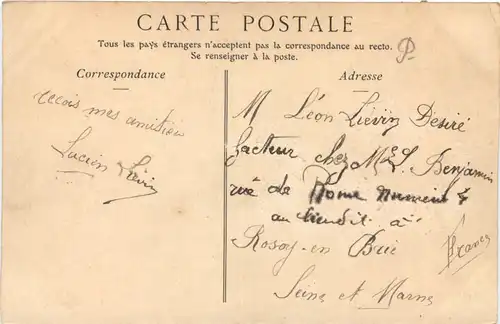 CARTE POSTALE
Tous les pays étrangers n'acceptent pas la correspondance au recto.
Se renseigner à la poste.
Correspondance
Adresse
recois mes amitiés
Lucien Liévin
M Léon Liévin Désiré
facteur chez M Benjamin
rue de Rome Numero 4
au lieudit à
Rosoy en Brie
Seine et Marne
France